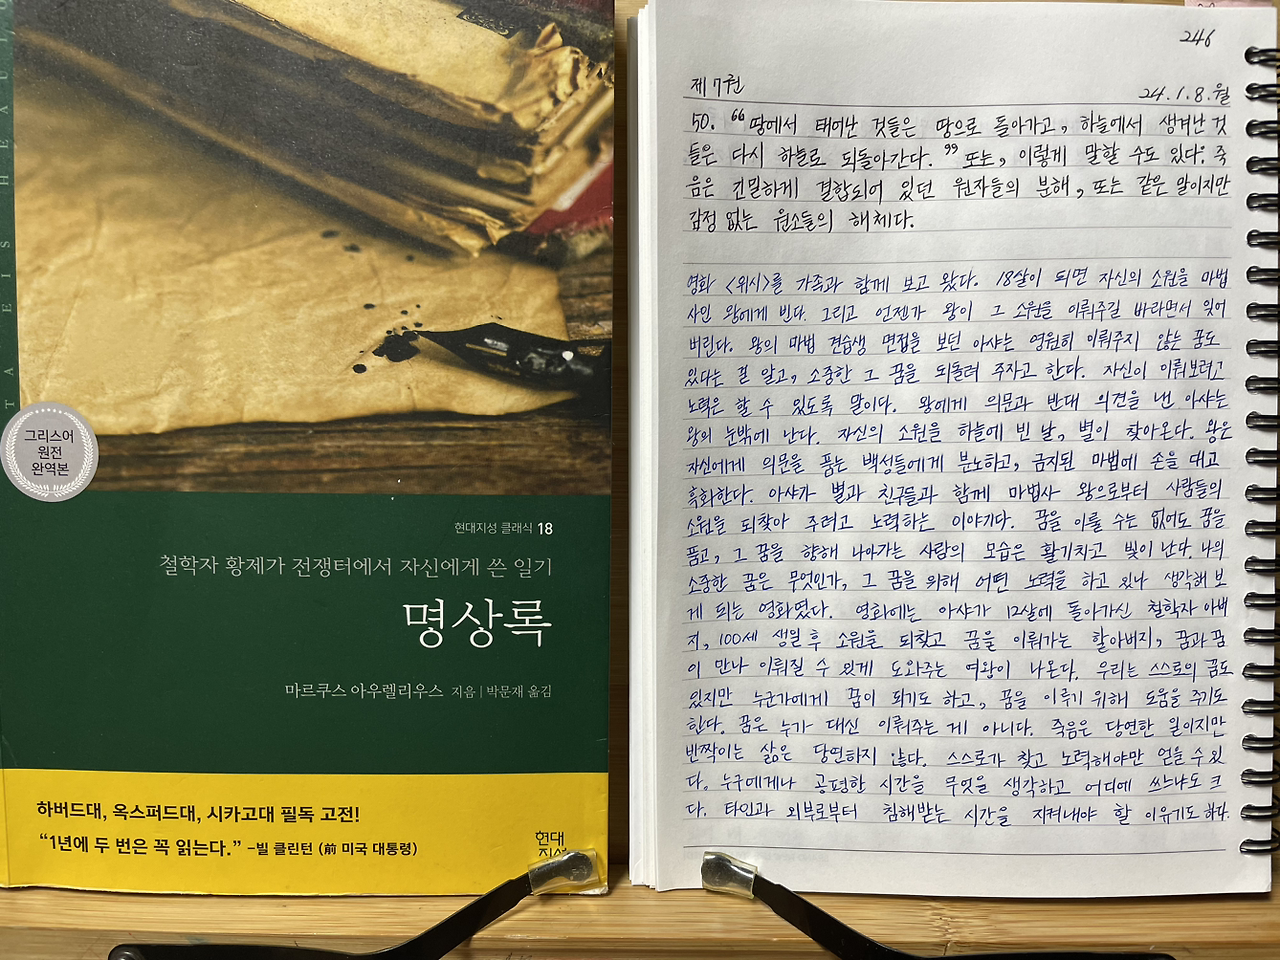 T A E I S H E A U
그리스어
원전
완역본
현대지성 클래식 18
철학자 황제가 전쟁터에서 자신에게 쓴 일기
명상록
마르쿠스 아우렐리우스 지음 | 박문재 옮김
하버드대, 옥스퍼드대, 시카고대 필독 고전!
“1년에 두 번은 꼭 읽는다.” -빌 클린턴 (前 미국 대통령)
현대
지성
246
제7권
24.1.8.월
50. “땅에서 태어난 것들은 땅으로 돌아가고, 하늘에서 생겨난 것
들은 다시 하늘로 되돌아간다.” 또는, 이렇게 말할 수도 있다. 죽
음은 긴밀하게 결합되어 있던 원자들의 분해, 또는 같은 말이지만
감정 없는 원소들의 해체다.
영화 <위시>를 가족과 함께 보고 왔다. 18살이 되면 자신의 소원을 마법
사인 왕에게 빈다. 그리고 언젠가 왕이 그 소원을 이뤄주길 바라면서 잊어
버린다. 왕의 마법 견습생 면접을 보던 아샤는 영원히 이뤄주지 않는 꿈도
있다는 걸 알고, 소중한 그 꿈을 되돌려 주자고 한다. 자신이 이뤄보려고
노력은 할 수 있도록 말이다. 왕에게 의문과 반대 의견을 낸 아샤는
왕의 눈밖에 난다. 자신의 소원을 하늘에 빈 날, 별이 찾아온다. 왕은
자신에게 의문을 품는 백성들에게 분노하고, 금지된 마법에 손을 대고
흑화한다. 아샤가 별과 친구들과 함께 마법사 왕으로부터 사람들의
소원을 되찾아 주려고 노력하는 이야기다. 꿈을 이룰 수는 없어도 꿈을
품고, 그 꿈을 향해 나아가는 사람의 모습은 활기차고 빛이 난다. 나의
소중한 꿈은 무엇인가, 그 꿈을 위해 어떤 노력을 하고 있나 생각해 보
게 되는 영화였다. 영화에는 아샤가 12살에 돌아가신 철학자 아버
지, 100세 생일 후 소원을 되찾고 꿈을 이뤄가는 할아버지, 꿈과 꿈
이 만나 이뤄질 수 있게 도와주는 여왕이 나온다. 우리는 스스로의 꿈도
있지만 누군가에게 꿈이 되기도 하고, 꿈을 이루기 위해 도움을 주기도
한다. 꿈은 누가 대신 이뤄주는 게 아니다. 죽음은 당연한 일이지만
반짝이는 삶은 당연하지 않다. 스스로가 찾고 노력해야만 얻을 수 있
다. 누구에게나 공평한 시간을 무엇을 생각하고 어디에 쓰느냐도 크
다. 타인과 외부로부터 침해받는 시간을 지켜내야 할 이유기도 하다.